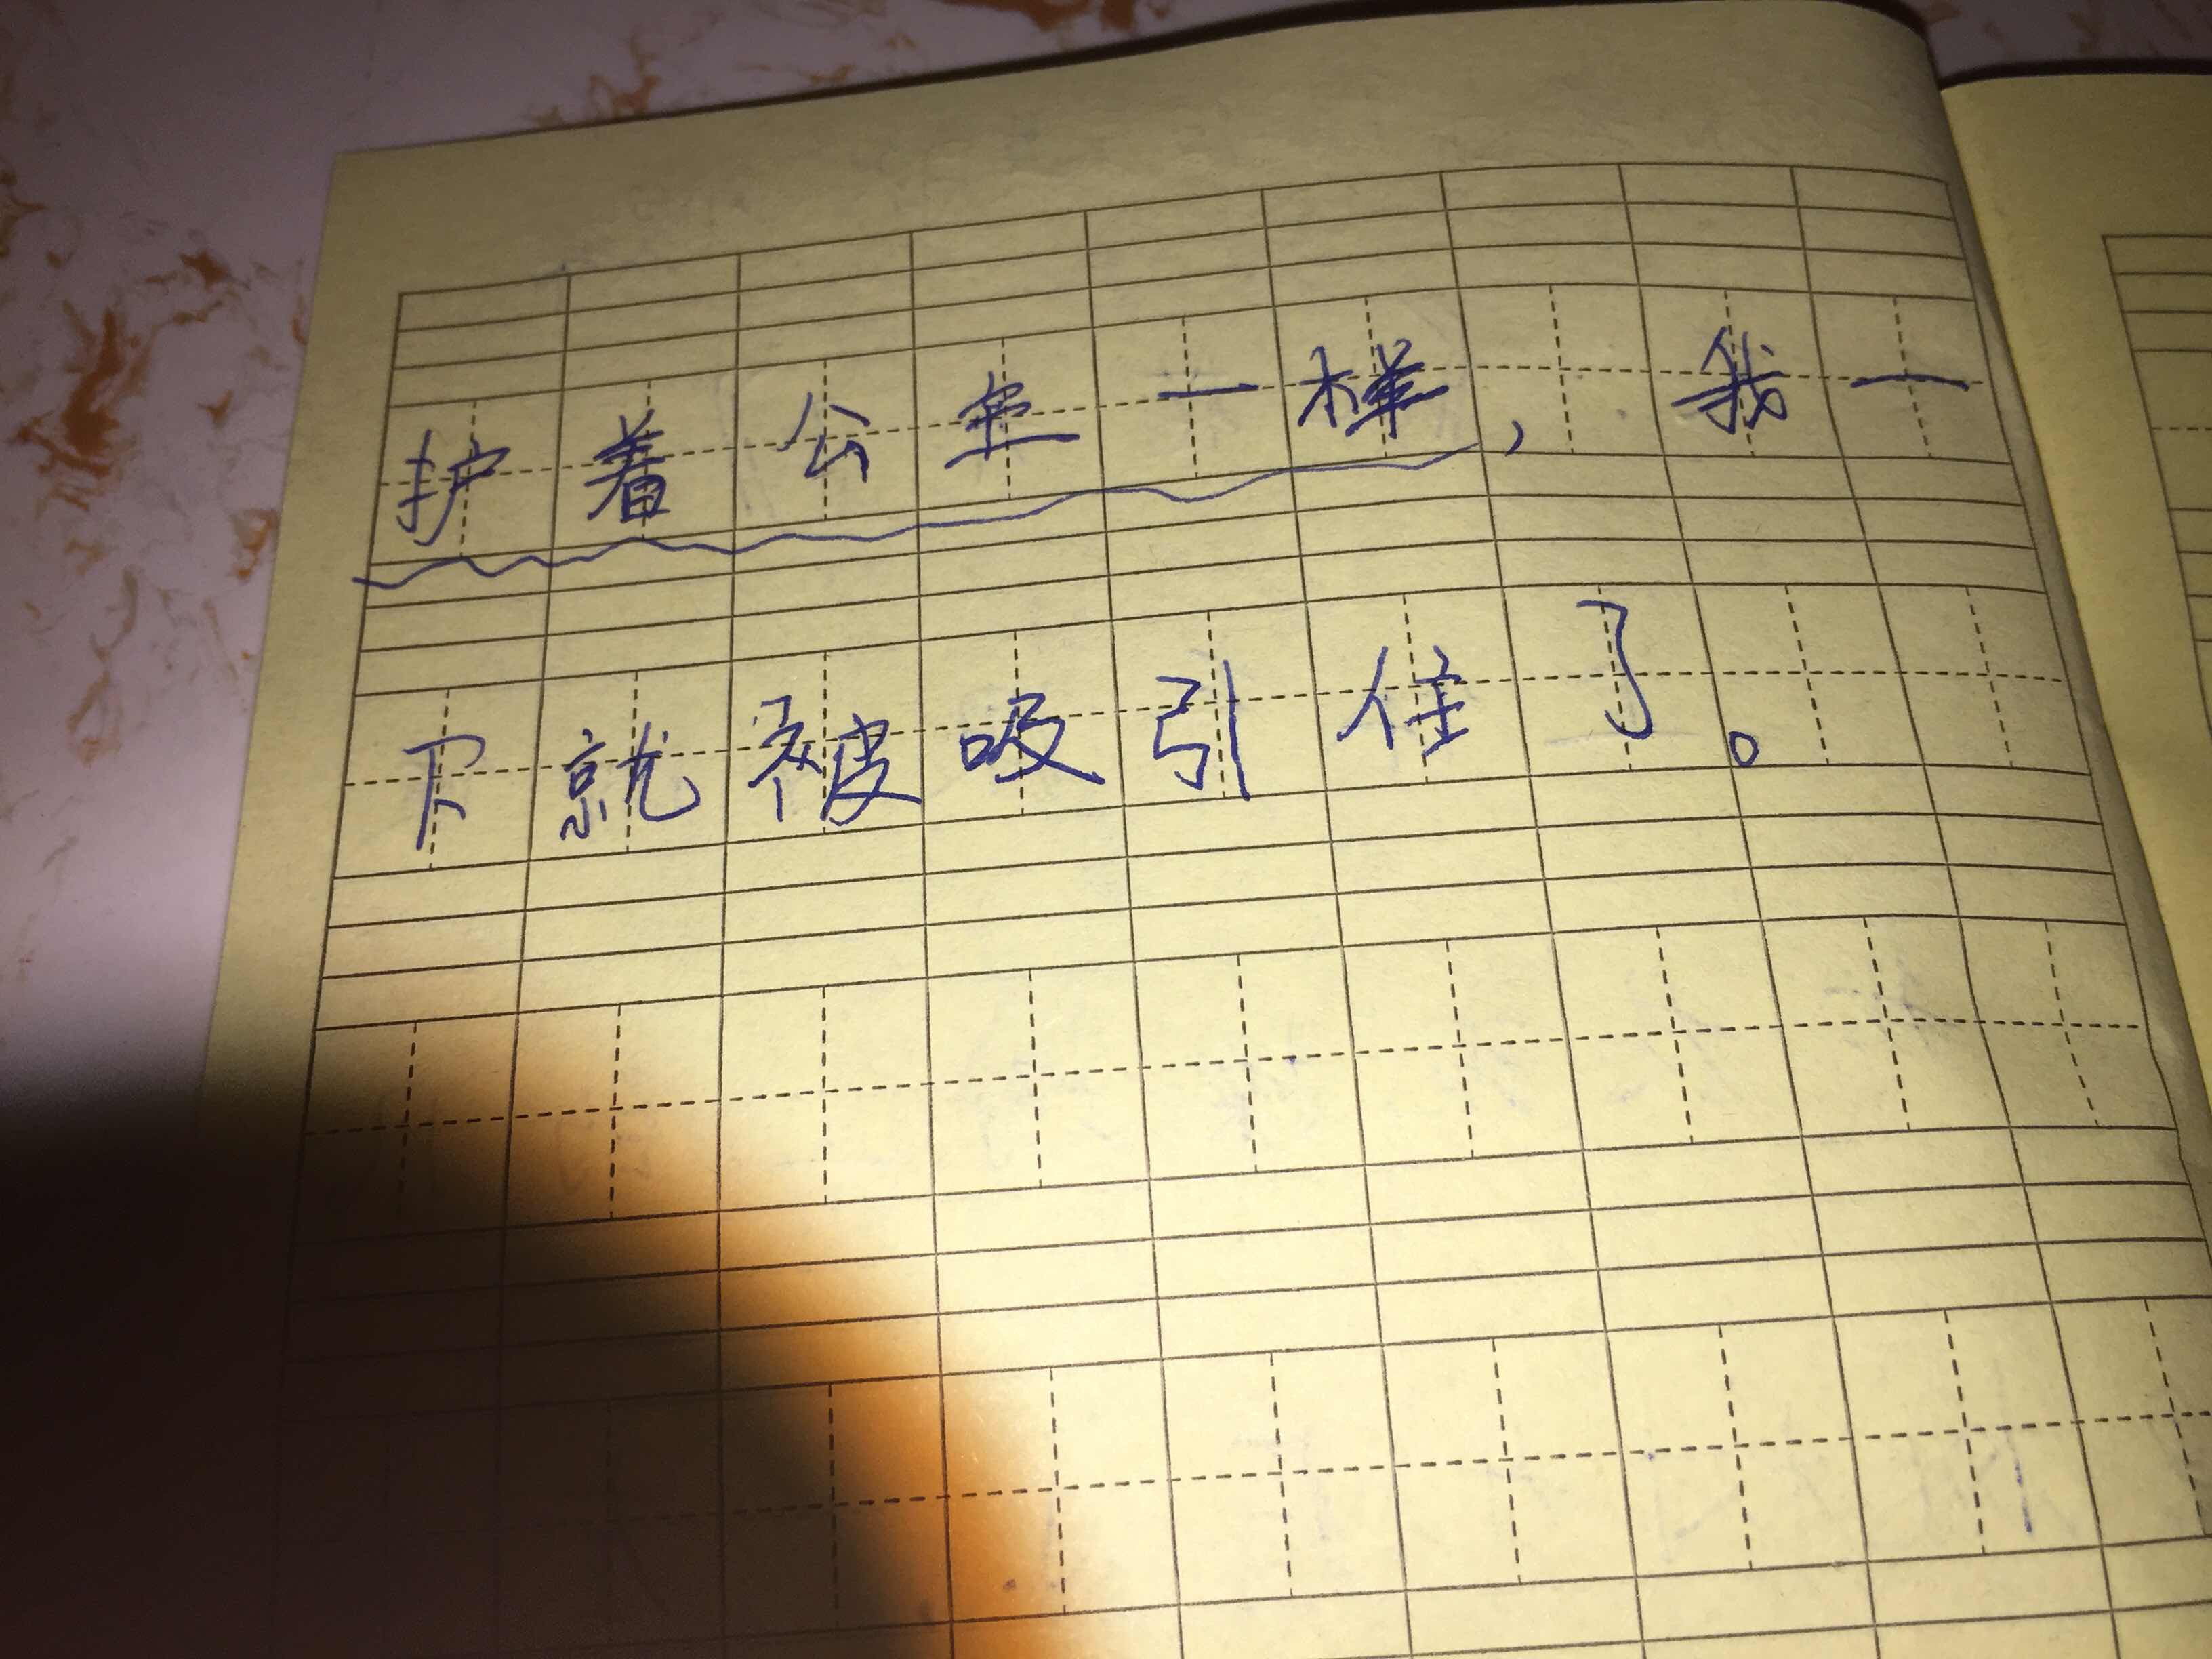 护着公主一样，我一
下就被吸引住了。